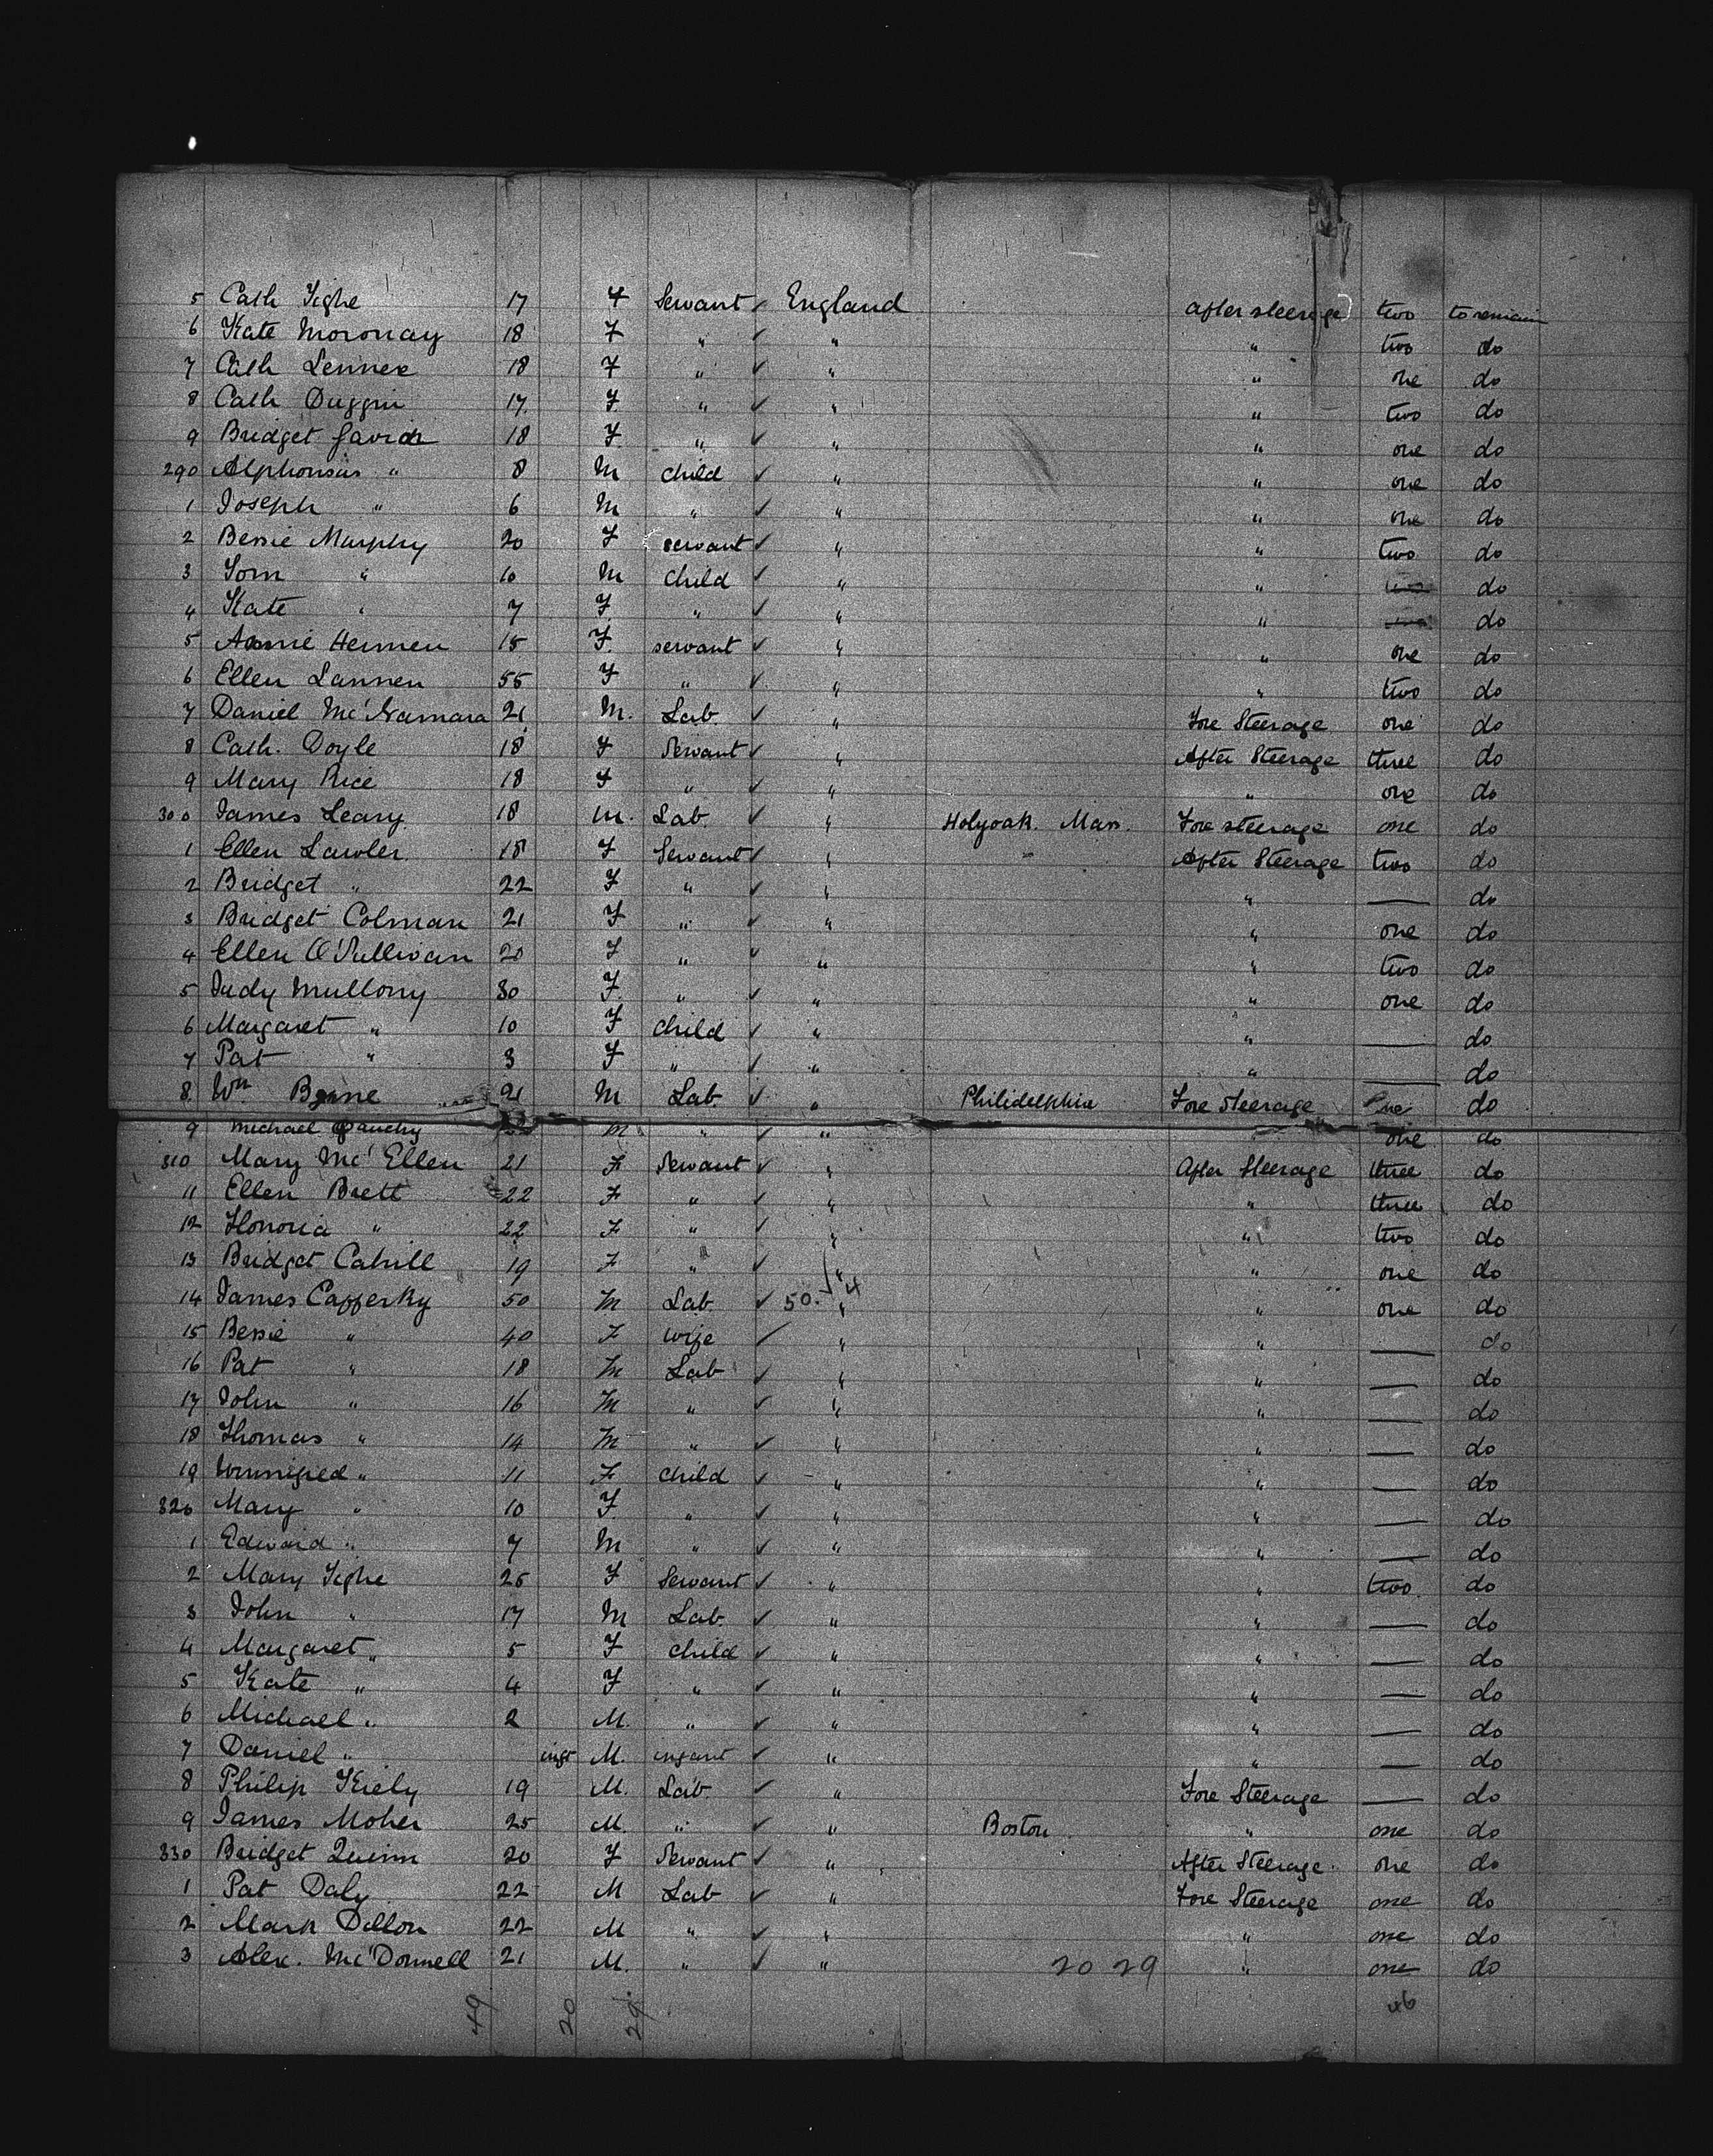 5 Cath Tighe 17 F Servant ✓ England After steerage two to remain
6 Kate Moronay 18 F " ✓ " " two do
7 Cath Lennex 18 F " ✓ " " one do
8 Cath Duggin 17 F " ✓ " " two do
9 Bridget 18 F " ✓ " " one do
290 Alphonsus " 8 M child ✓ " " one do
1 Joseph " 6 M " ✓ " " one do
2 Bessie Murphy 20 F servant ✓ " " two do
3 Tom " 10 M child ✓ " " do
4 Kate " 7 F " ✓ " " do
5 Annie Hennen 15 F servant ✓ " " one do
6 Ellen Lannen 55 F " ✓ " " two do
7 Daniel McNamara 21 M. Lab. ✓ " Fore Steerage one do
8 Cath. Doyle 18 F Servant ✓ " After Steerage three do
9 Mary Rice 18 F " ✓ " " one do
300 James Leary 18 M. Lab. ✓ " Holyoak. Mass. Fore steerage one do
1 Ellen Lawler 18 F Servant ✓ " After Steerage two do
2 Bridget " 22 F " ✓ " " — do
3 Bridget Colman 21 F " ✓ " " one do
4 Ellen O'Sullivan 20 F " ✓ " " two do
5 Judy Mullony 30 F. " ✓ " " one do
6 Margaret " 10 F child ✓ " " — do
7 Pat " 3 F " ✓ " " — do
8 Wm Byrne 21 M Lab. ✓ " Philidelphia Fore Steerage one do
9 Michael M " ✓ " one do
310 Mary Mc'Ellen 21 F Servant ✓ " After Steerage three do
11 Ellen Brett 22 F " ✓ " " three do
12 Honoria " 22 F " ✓ " " two do
13 Bridget Cahill 19 F " ✓ " " one do
14 James Cafferky 50 M Lab. ✓ 50. √4 " " one do
15 Bessie " 40 F wife ✓ " " — do
16 Pat " 18 M Lab ✓ " " — do
17 John " 16 M " ✓ " " — do
18 Thomas " 14 M " ✓ " " — do
19 Winnifred " 11 F child ✓ " " — do
320 Mary " 10 F. " ✓ " " — do
1 Edward " 7 M " ✓ " " — do
2 Mary Tighe 25 F Servant ✓ " " two do
3 John " 17 M Lab. ✓ " " — do
4 Margaret " 5 F child ✓ " " — do
5 Kate " 4 F " ✓ " " — do
6 Michael " 2 M. " ✓ " " — do
7 Daniel " inft M. infant ✓ " " — do
8 Philip Kiely 19 M. Lab. ✓ " Fore Steerage — do
9 James Moher 25 M. " ✓ " Boston " one do
330 Bridget Quinn 20 F Servant ✓ " After Steerage one do
1 Pat Daly 22 M Lab ✓ " Fore Steerage one do
2 Mark Dillon 22 M " ✓ " " one do
3 Alex. Mc'Donnell 21 M. " ✓ " 20 29 " one do
49 20 29. 46